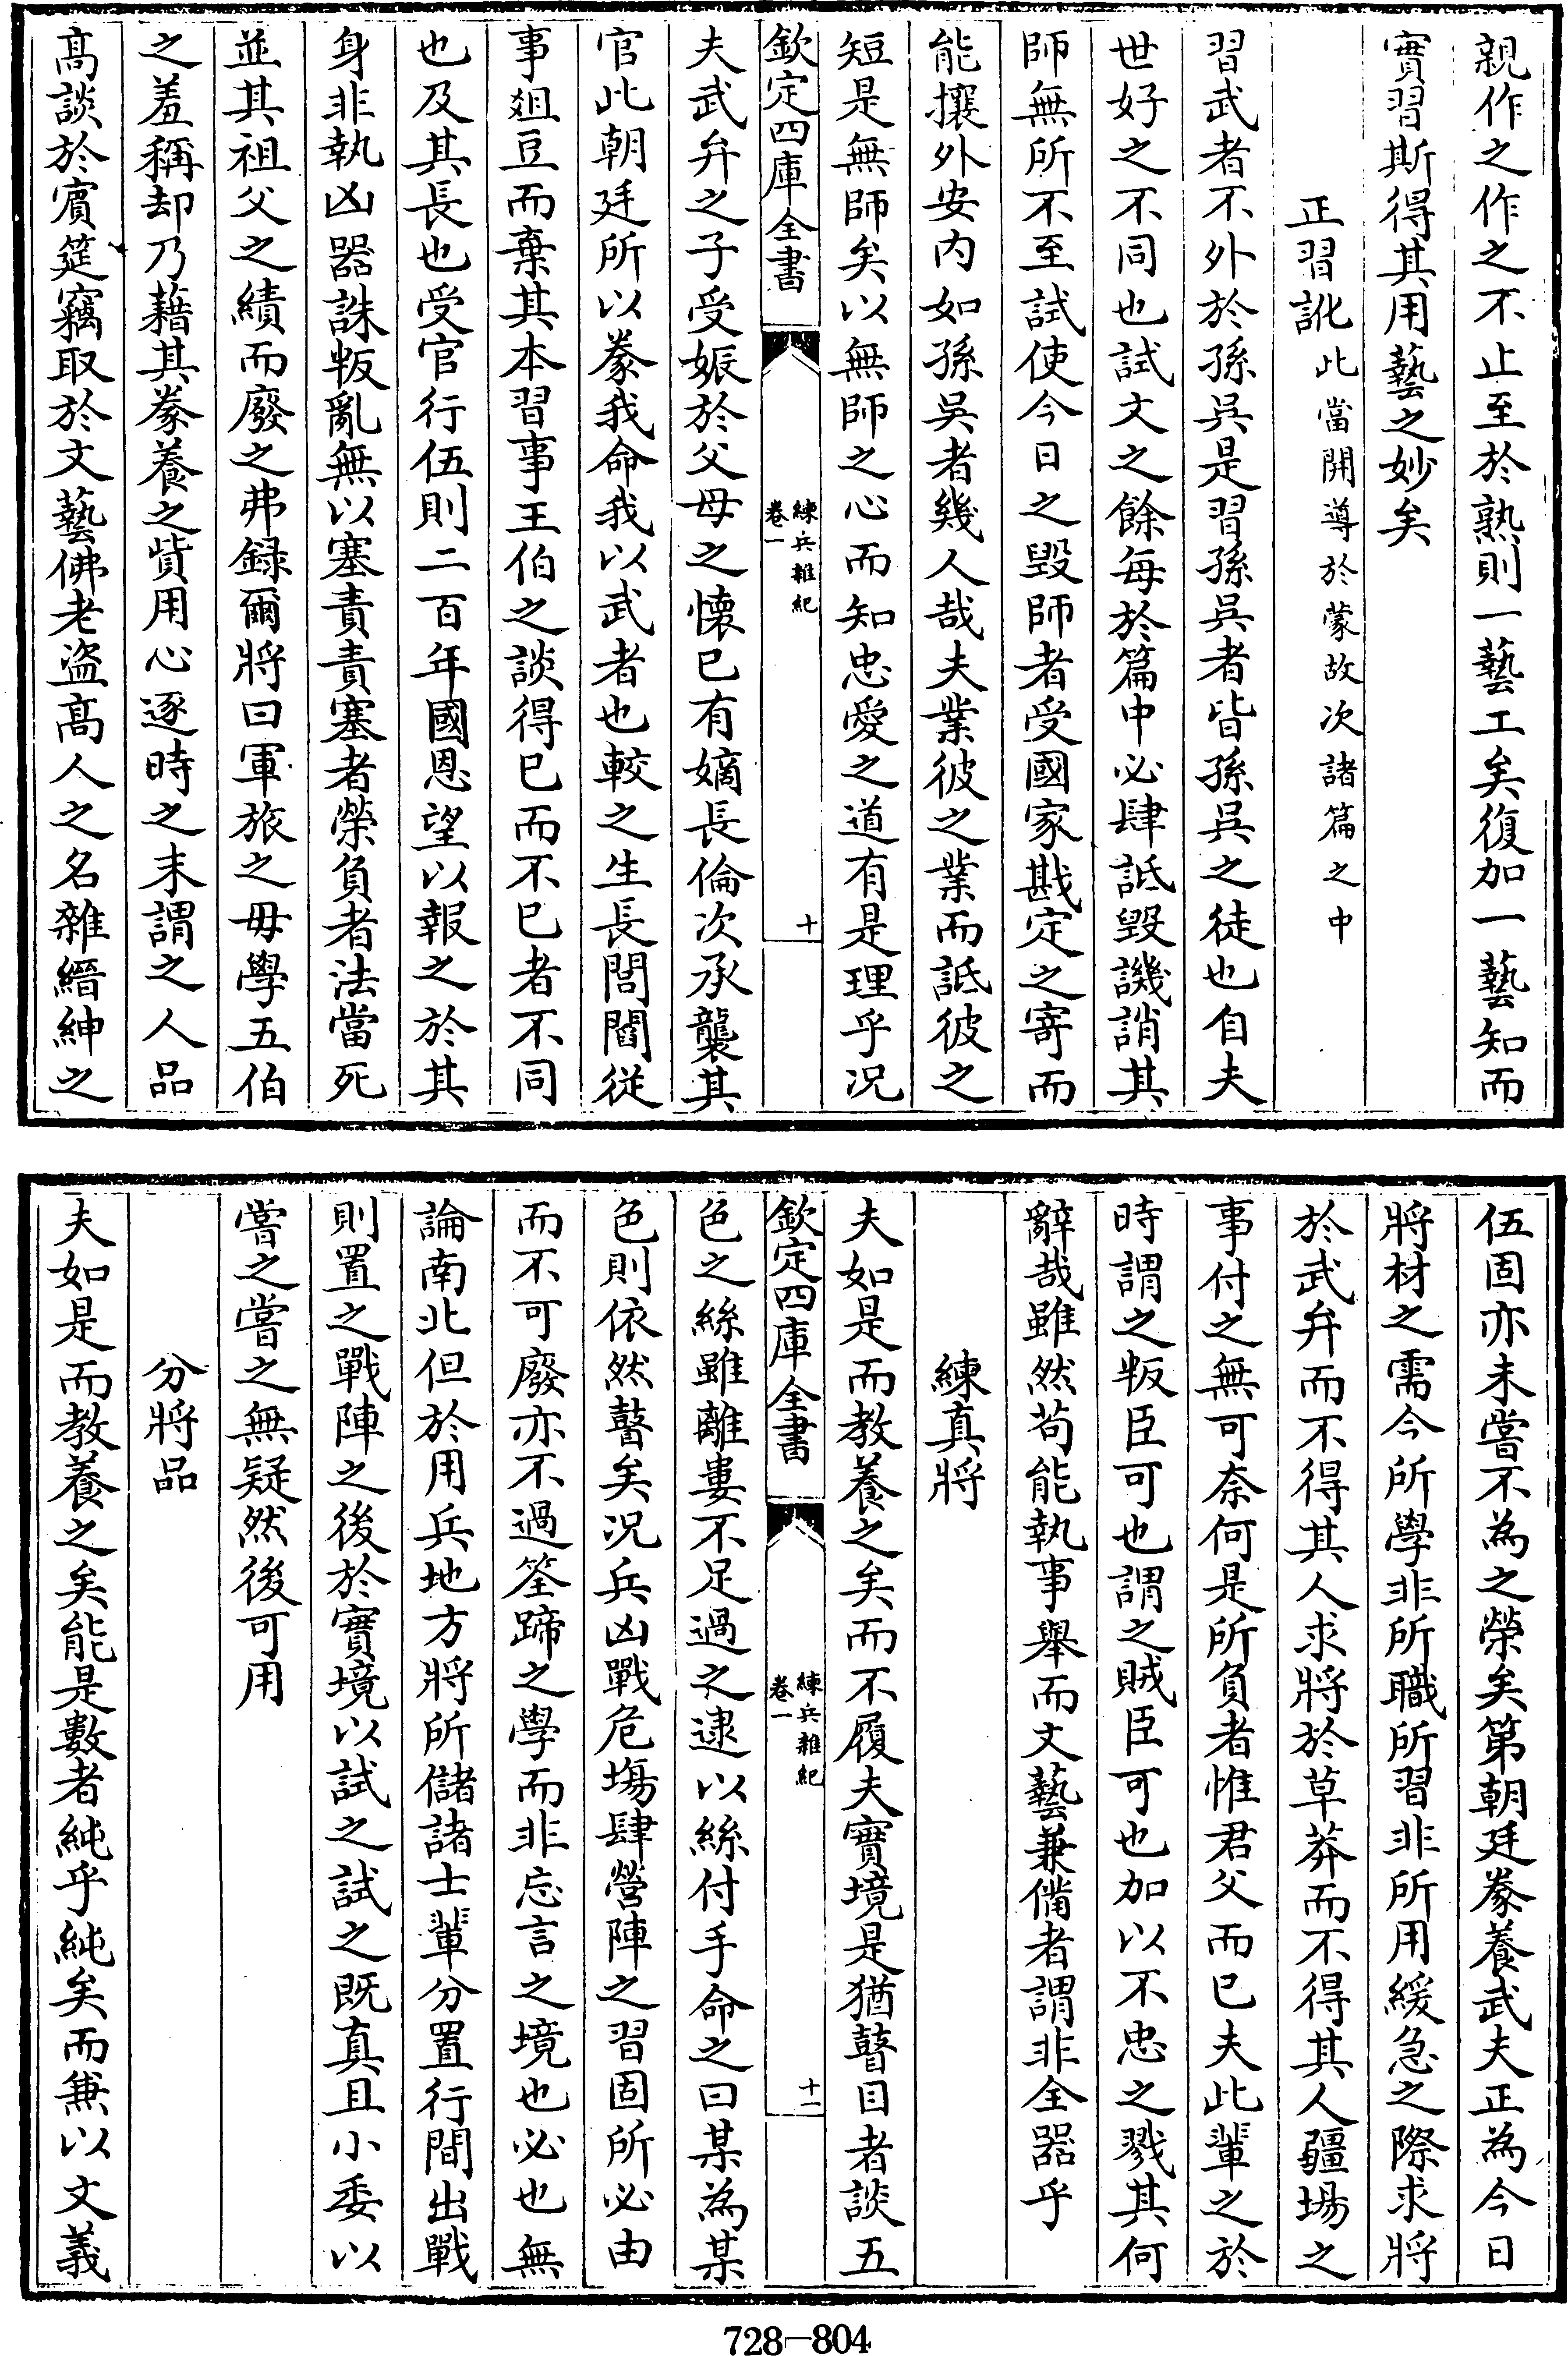 親作之作之不止至於熟則一藝工矣復加一藝知而
實習斯得其用藝之妙矣
正習訛此當開導於蒙故次諸篇之中
習武者不外於孫吳是習孫吳者皆孫吳之徒也自夫
世好之不同也試文之餘每於篇中必肆詆毀譏誚其
師無所不至試使今日之毀師者受國家戡定之寄而
能攘外安内如孫吳者幾人哉夫業彼之業而詆彼之
短是無師矣以無師之心而知忠愛之道有是理乎况
欽定四庫全書
練兵雜紀
卷一
十
夫武弁之子受娠於父母之懐已有嫡長倫次承襲其
官此朝廷所以豢我命我以武者也較之生長閭閻從
事爼豆而棄其本習事王伯之談得已而不已者不同
也及其長也受官行伍則二百年國恩望以報之於其
身非執凶器誅叛亂無以塞責責塞者榮負者法當死
並其祖父之績而廢之弗録爾將曰軍旅之毋學五伯
之羞稱却乃藉其豢養之貲用心逐時之末謂之人品
髙談於賔筵竊取於文藝佛老盗髙人之名雜縉紳之
伍固亦未嘗不為之榮矣第朝廷豢養武夫正為今日
將材之需今所學非所職所習非所用緩急之際求將
於武弁而不得其人求將於草莽而不得其人疆埸之
事付之無可奈何是所負者惟君父而已夫此輩之於
時謂之叛臣可也謂之賊臣可也加以不忠之戮其何
辭哉雖然茍能執事舉而文藝兼備者謂非全器乎
練真將
夫如是而教養之矣而不履夫實境是猶瞽目者談五
欽定四庫全書
練兵雜紀
卷一
十一
色之絲雖離婁不足過之逮以絲付手命之曰某為某
色則依然瞽矣况兵凶戰危塲肆營陣之習固所必由
而不可廢亦不過筌蹄之學而非忘言之境也必也無
論南北但於用兵地方將所儲諸士輩分置行間出戰
則置之戰陣之後於實境以試之試之既真且小委以
嘗之嘗之無疑然後可用
分將品
夫如是而教養之矣能是數者純乎純矣而兼以文義
728-804